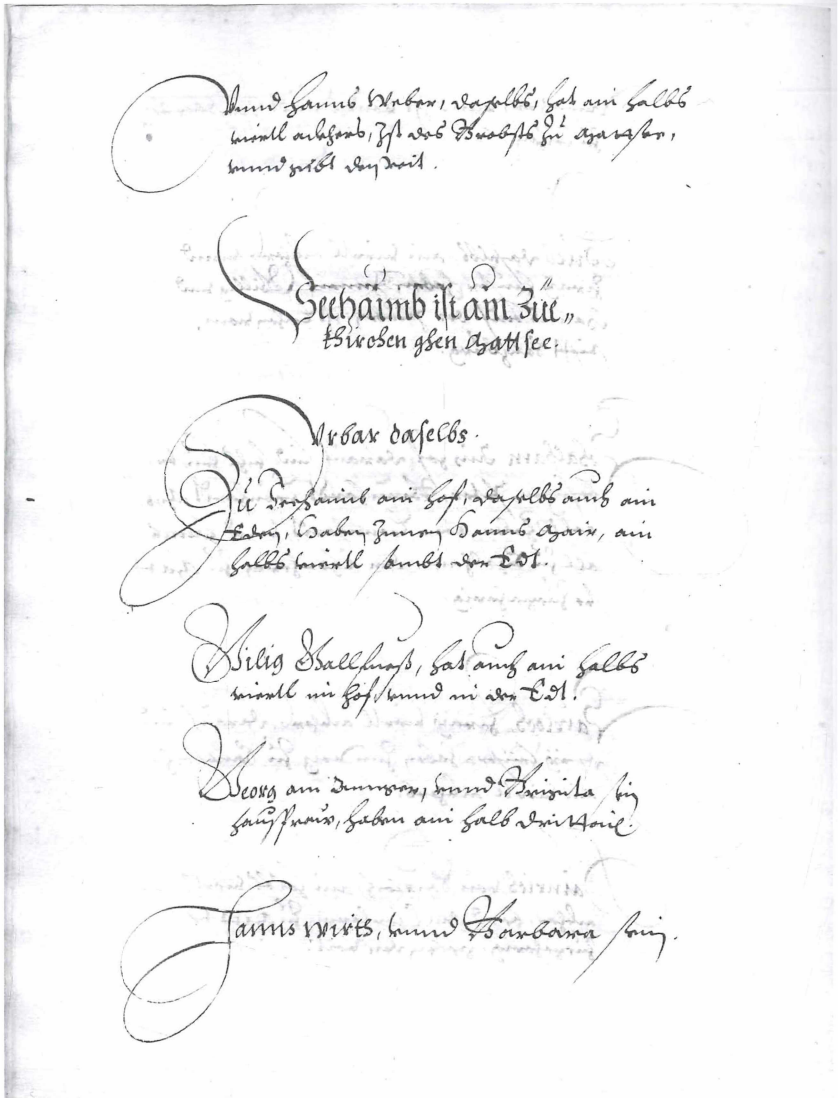 Vnnd Hanns Weber, daselbs, hat ain halbs
viertl ackhers, Ist des Brobsts zu Mattsee,
vnnd gibt den zeit.
Seehaimb ist am Züe„
khirchen ghen Mattsee.
Vrbar daselbs.
Zu Seehaimb am hof, daselbs auch am
Eden, Haben Innen Hanns Mair, ain
halbs viertl sambt der Edt.
Gilig Gallsnest, hat auch ain halbs
viertl im hof, vnnd in der Edt.
Georg am, vnnd Brigita sein
hausfraw, haben ain halb drittail.
Hanns wirth, vnnd Barbara sein.